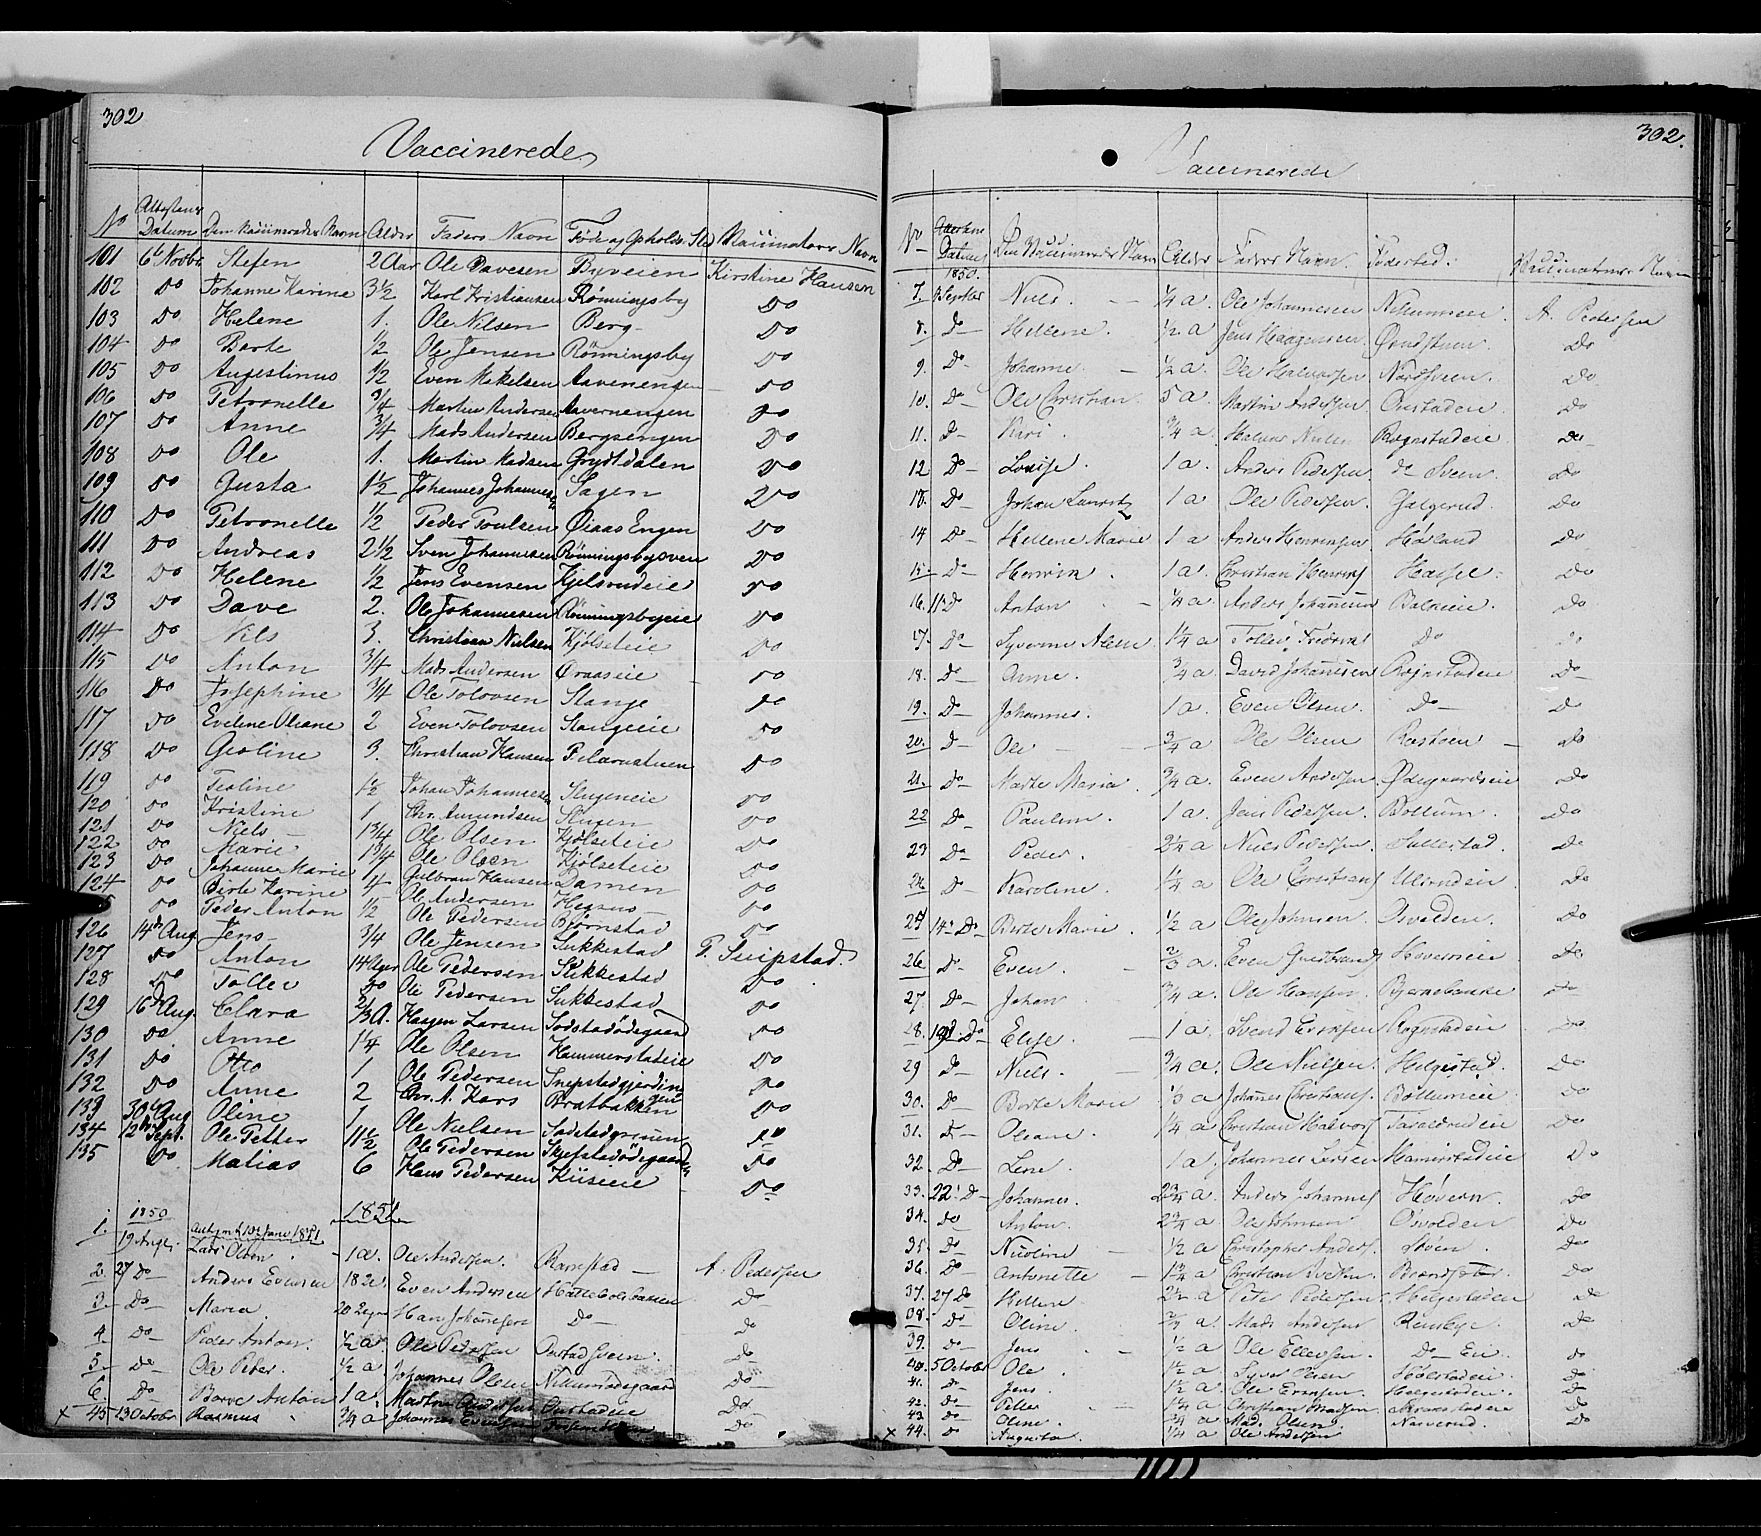 302
Vaccinerede
No Attestens Datum Den Vaccineredes Navn Alder Faders Navn Føde og Opholds Sted Vaccinatørs Navn
101 6te Novbr. Stefen 2 Aar Ole Davesen Byeien Kirstine Hansen
102 Do Johanne Karine 3½ Karl Kristiansen Rönningsby Do
103 Do Helene 1. Ole Nilsen Berg Do
104 Do Berte ½ Ole Jensen Rönningsby Do
105 Do Augestinus ½ Even Mikelsen Aavenengen Do
106 Do Petronelle ¾ Martin Andersen Aavernengen Do
107 Do Anne ¾ Mads Andersen Bergsengen Do
108 Do Ole 1. Martin Madsen Grydtdalen Do
109 Do Gusta 1½ Johannes Johannesen Sagen Do
110 Do Petronelle ½ Peder Poulsen Øiaas Engen Do
111 Do Andreas 2½ Sven Johannesen Rönningsbysven Do
112 Do Helene ½ Jens Evensen Kjelsrudeie Do
113 Do Dave 2. Ole Johannesen Rönningsbyeie Do
114 Do Nils 3. Christian Nielsen Kjölseteie Do
115 Do Anton ¾ Mads Andersen Øraaseie Do
116 Do Josephine ¾ Ole Tolovsen Stange Do
117 Do Eviline Oleane 2 Even Tolovsen Stangeeie Do
118 Do Geoline 3. Christian Hansen Pilarnstuen Do
119 Do Teoline 1½ Johan Johannesen Slugeneie Do
120 Do Kristine 1 Chr. Amundsen Slugen Do
121 Do Niels 1¾ Ole Olsen Kjølseteie Do
122 Do Marie 1¾ Ole Olsen Kjölseteie Do
123 Do Johanne Marie ¼ Gulbran Hansen Damen Do
124 Do Berte Karine Ole Andersen Do
Do Peder Anton ½ Ole Pedersen Bjørnstad Do
126 14de Aug Jens ¾ Ole Jensen Sukkestad P. Snipstad
127 Do Anton 14 Uger Ole Pedersen Sukkestad Do
128 Do Tollev Do Ole Pedersen Sukkestad Do
129 16d Aug. Clara ⅔ A. Haagen Larsen Sodstadødegaard Do
130 Do Anne 1¼ Ole Olsen Hammerstadeie Do
131 Do Otto 1 Ole Pedersen Snipstadgjerdingen Do
132 Do Anne 2 Chr. A. Kars Bratbakken Do
133 30te Aug Oline 1 Ole Nielsen Do
134 12te Sept. Ole Petter 11½ Ole Pedersen Skjefstadødegaard Do
135 Do Matias 6 Hans Pedersen Kiiseeie Do
1850 1851
1. 19 Aug. Lars Olsen 1 a. Ole Andersen Ramstad A. Pedersen
2. 27 Do Anders Evensen 18 a. Even Andersen Do
3. Do Maria 20 Hans Johannesen Do Do
4. Do Peder Anton ½ a. Ole Pedersen Onstadsveen Do
5. Do Ole Peder. ½ a. Johannes Olsen Do
6. Do Anton 1 a. Martin Andersen Onstadeie Do
x 45 13 October Rasmus ¾ a. Johannes Evensen Do
302.
Vaccinerede
No Attestens Datum Den Vaccineredes Navn Alder Faders Navn Fødested. Vaccinatørens Navn
1850.
7. Septbr Niels. ¼ a. Ole Johannesen A. Pedersen
8. Do Hellene. ½ a Jens Haagensen Do
9. Do Johanne. ½ a. Ole Halvorsen Nordsveen. Do
10. Do Ole Christian. 5 a. Martin Andersen Onstadeie. Do
11. Do Kari. ¾ a. Halvor Nielsen Rognstadeie Do
12 Do Lovise. 1 a. Anders Pedersen do Sveen Do
13. Do Johan Lauritz 1 a Ole Pedersen. Gjalgerud. Do
14 Do Hellene Marie 1 a Anders Henriksen Høiland Do
15. Do Henrik. 1 a. Christian Henriks Hassel. Do
16. 11te D Anton ¼ a. Anders Johannesen Balkeeie. Do
17. Do Syverine Alene 1¼ a Tollev Fredriks Do Do
18. Do Anne. ¾ a. David Johannesen Rognstadeie Do
19. Do Johannes. 1 a. Even Olsen. Do Do
20. D Ole ¾ a Ole Olsen Rostøen Do
21. Do Marthe Maria ¾ a. Even Andersen Ødegaardseie Do
22 Do Pauline. 1 a. Jens Pedersen. Bollum. Do
23 Do Peder. 2¼ a Niels Pedersen. Sullestad. Do
24. D Karoline. 1¼ a Ole Christians Ulvundeie. Do
25 14de Do Berte Marie. ½ a Ole Johnsen Osvolden. Do
26 D Even. ⅔ a. Even Gundbrands Hoverneie Do
27. Do Johan ¾ a. Ole Hansen. Bjernebakke Do
28. 19d Do Elise. 1 a. Svend Evensen Rognstadeie Do
29 D Niels. ¾ a. Ole Nielsen. Helgestad. Do
30. Do Berte Marie ⅓ a Johannes Christians. Bollumeie. Do
31. D Oleane. ¼ a Christian Halvors Taraldrudeie Do
32. Do Lene. 1 a. Johannes Larsen Hamerstadeie Do
33. 22. D Johannes. 2¾ a. Anders Johannes Høvern. Do
34. Do Anton. 2¾ a. Ole Johnsen Osvolden Do
35. Do Nicoline ½ a Christopher Anders. Støen. Do
36. Do Antonette 1¾ a Christian Do
37. 27 Do Hellene 2½ a Peter Pedersen Helgestadeie Do
38. Do Oline. a. Mads Andersen Rensbye. Do
39. Do Jens ½ a Ole Ellevsen. Do Eie Do
40. 5 October Ole 1½ a Syver Olsen Holestadeie Do
41. Do Jens 1½ a Ole Evensen. Helgestadeie. Do
42. Do Peder 1¼ a Christian Madsen Do
43. Do Oline. ¾ a Mads Olsen Narverud. Do
x 44. D Augusta. ¼ a Ole Andersen